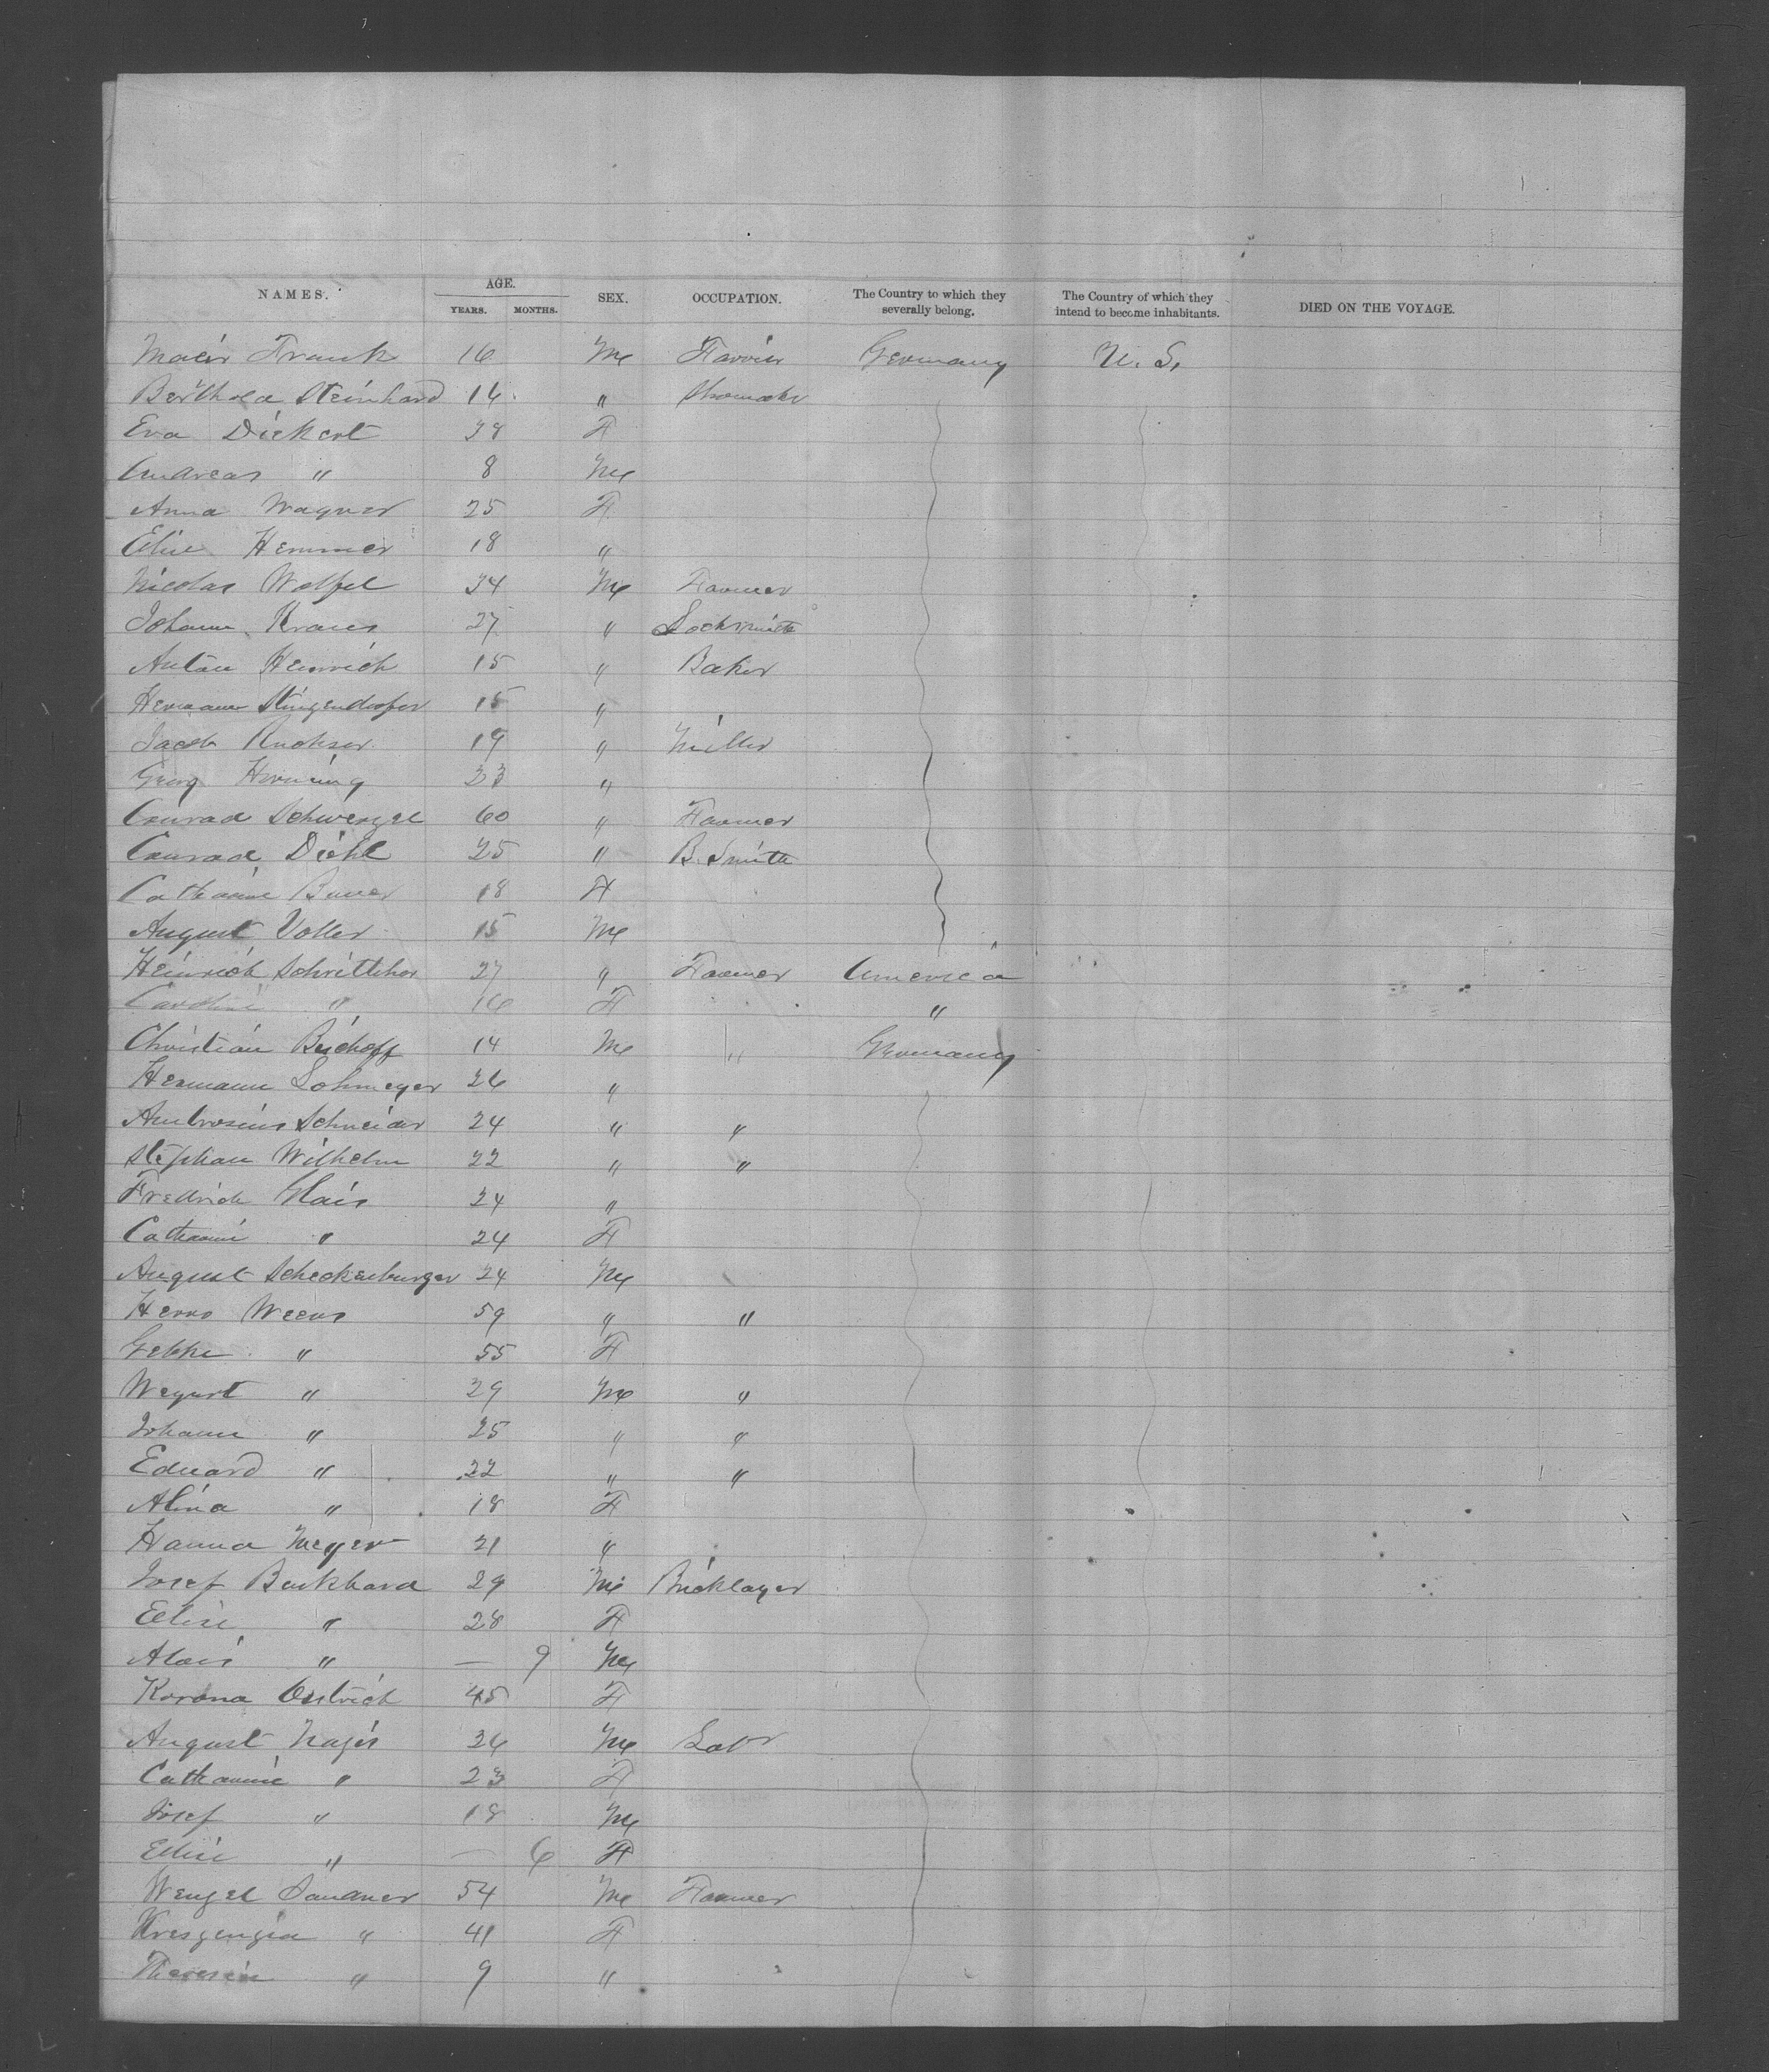 NAMES. AGE. SEX. OCCUPATION. The Country to which they severally belong. The Country of which they intend to become inhabitants. DIED ON THE VOYAGE.
YEARS. MONTHS.
Maeir Frank 16 M Farrier Germany U. S.
Berthold Steinhard 14 " Shomakr
Eva Diekert 38 F
Andreas " 8 M
Anna Wagner 25 F
Elise Hemmer 18 "
Nicolas Wolfel 34 M Farmer
Johann Kraus 27 " Locksmith
Anton Heinrich 15 " Baker
Hermann 15 "
Jacob 19 " Miller
Georg 23 "
Conrad Schwengel 60 " Farmer
Conrad Diehl 25 " B. Smith
Catharine Bauer 18 F
August Voller 15 M
Heinrich 27 " Farmer America
Caroline " 16 F "
Christian Bischoff 14 M " Germany
Hermann Lohmeyer 26 "
Ambrosius Schneider 24 " "
Stephan Wilhelm 22 " "
Fredrich Glais 24 "
Catharine " 24 F
August Scheckenburger 24 M
Harro Weens 59 " "
Gebke " 55 F
Weyert " 29 M "
Johann " 25 " "
Eduard " 22 " "
Alina " 18 F
Hanna Meyer 21 "
Josef Burkhard 29 M Bricklayer
Elise " 28 F
Alois " — 9 M
Korona Ostrich 45 F
August 26 M Labr
Catharine " 23 F
Josef " 18 M
Elise " — 6 F
Wenzel Sandner 54 M Farmer
Kreszenzia " 41 F
Theresia " 9 "